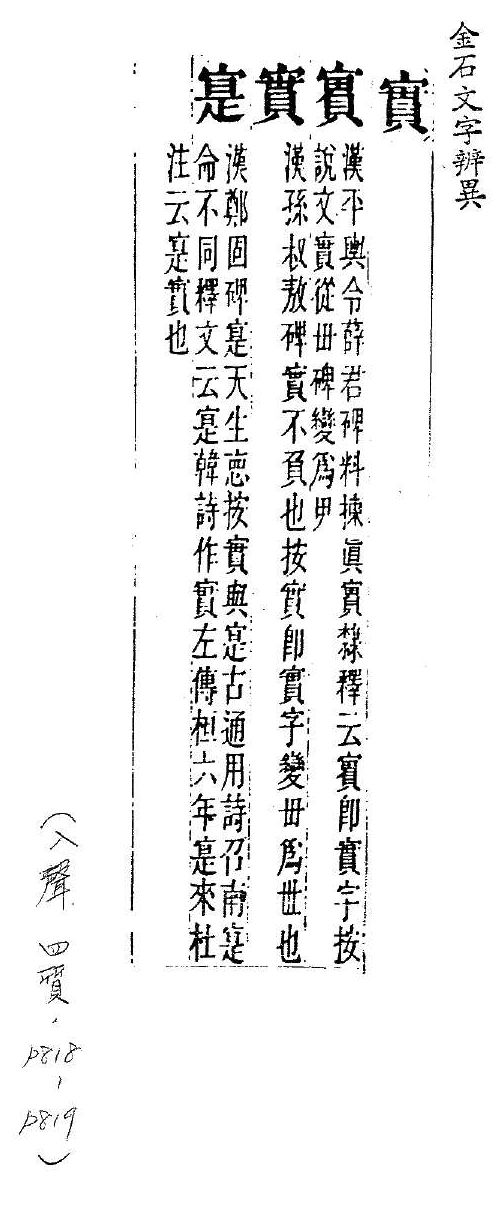 金石文字辨異
實
實
漢平輿令薛君碑料揀眞實隸釋云實即實字按
說文實從毌碑變爲甲
實
漢孫叔敖碑實不負也按實即實字變毌爲世也
寔
漢鄭固碑寔天生悳按實與寔古通用詩召南寔
命不同釋文云寔韓詩作實左傳桓六年寔來杜
注云寔實也
(入聲 四質, p818, p819)